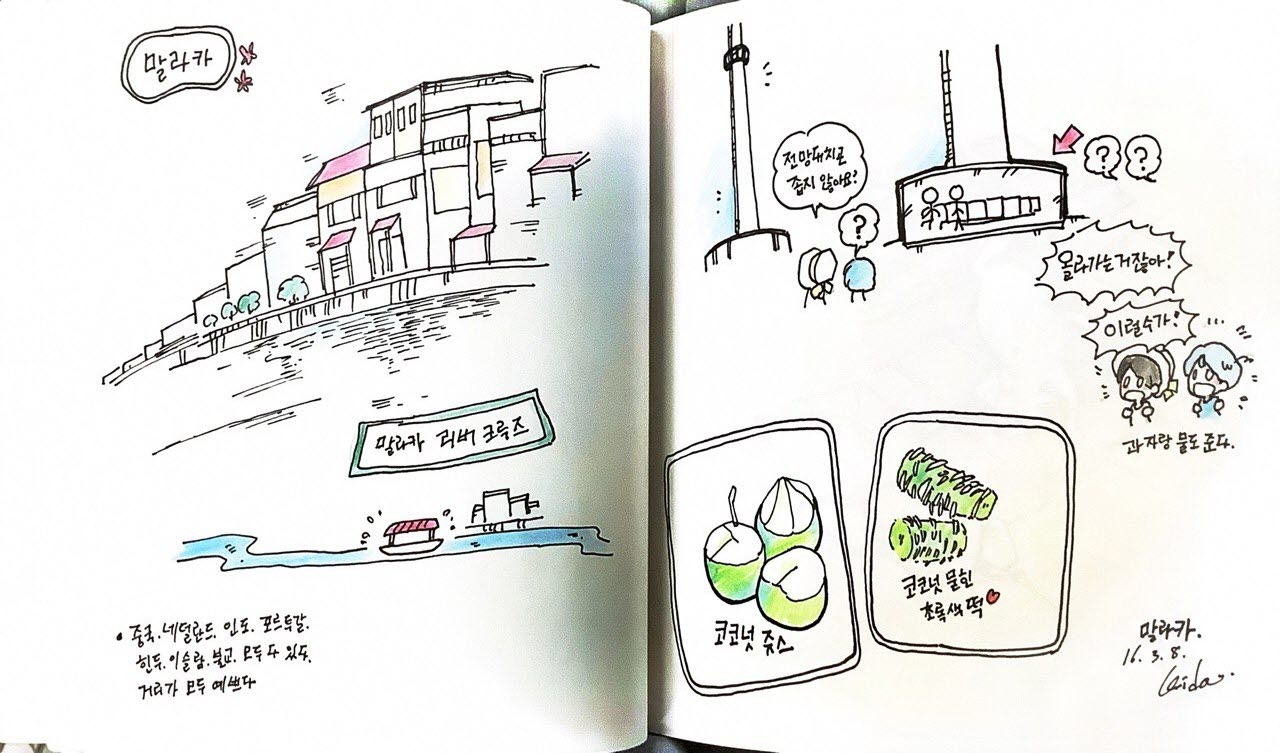 말라카
말라카 리버 크루즈
중국.네덜란드.인도.포르투갈.
힌두.이슬람.불교.모두 다 있다.
거리가 모두 예쁘다
전망대치곤
좁지 않아요?
?
? ?
올라가는거잖아!
이럴수가!
...
과자랑 물도 준다.
코코넛 쥬스
코코넛 묻힌
초록색떡
말라카.
16. 3. 8.